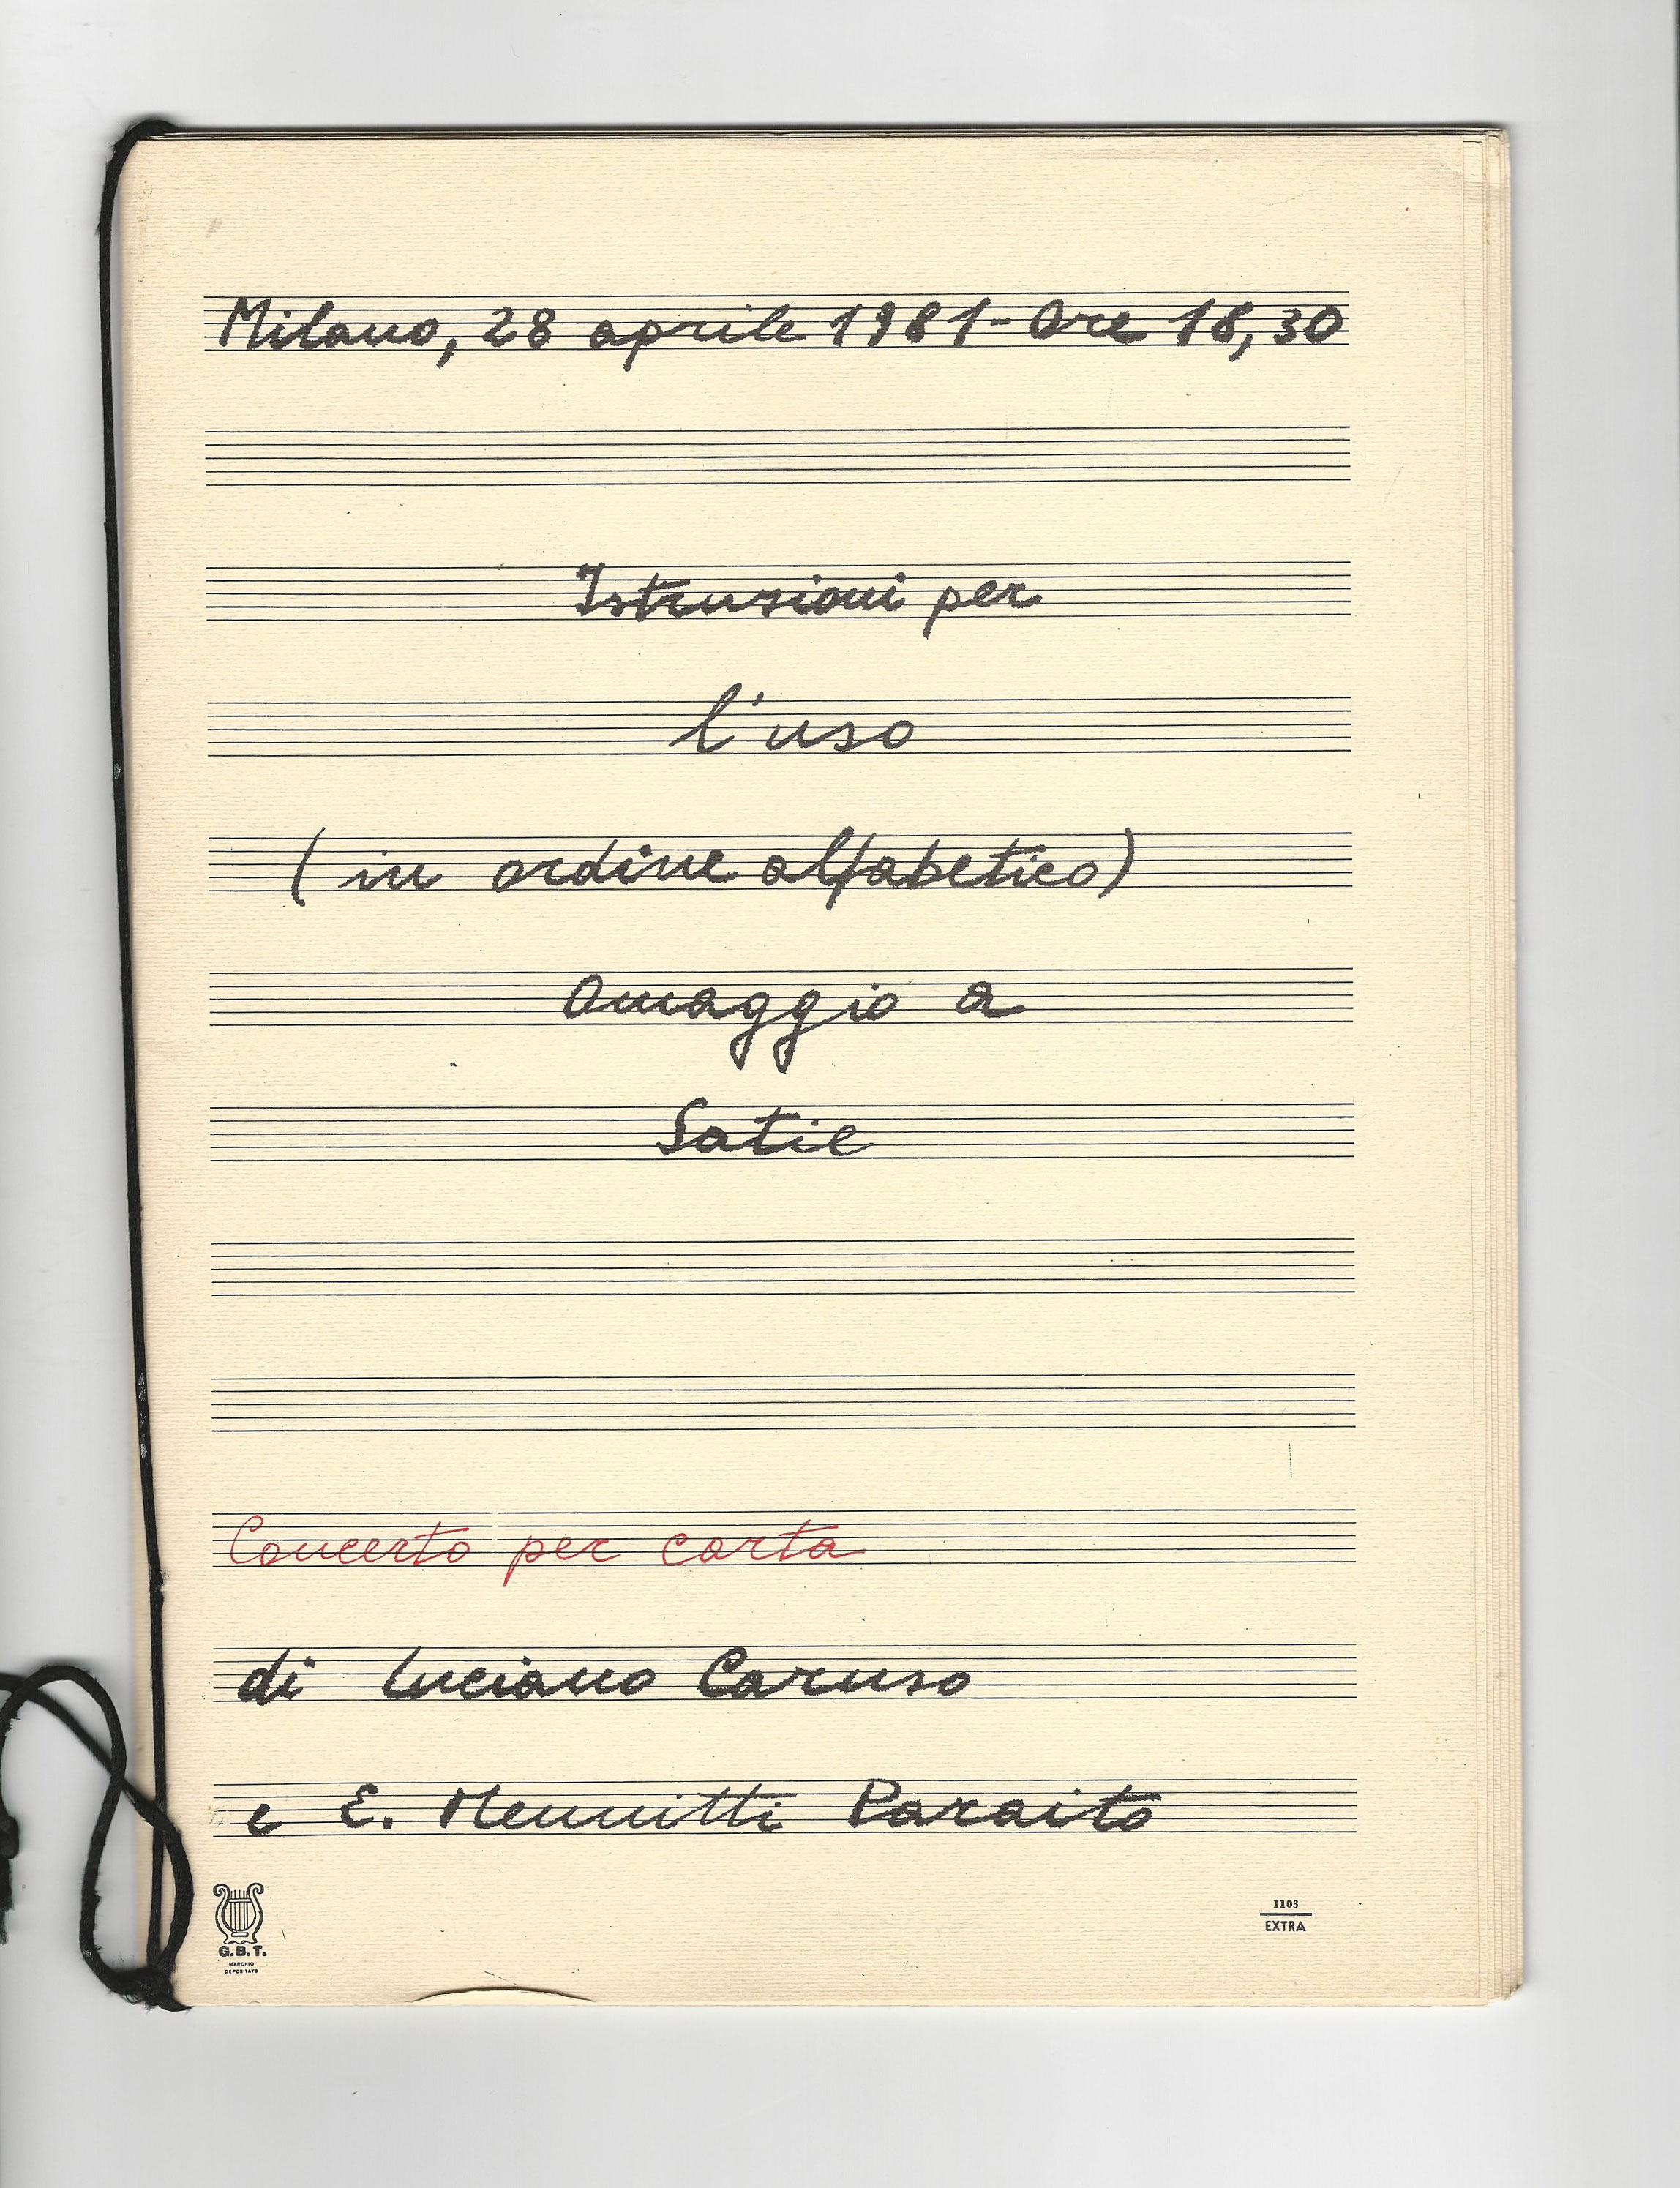 Milano, 28 aprile 1981 - Ore 18,30
Istruzioni per
l'uso
(in ordine alfabetico)
Omaggio a
Satie
Concerto per carta
di Luciano Caruso
e E. Mennitti Paraito
G.B.T.
MARCHIO
DEPOSITATO
1103
EXTRA